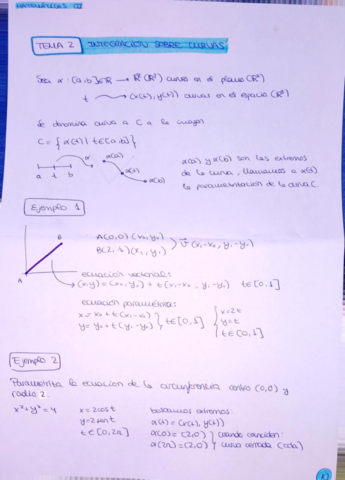 MATEMÁTICAS III
TEMA 2 INTEGRACIÓN SOBRE CURVAS
Sea α: [a,b]∈R → R² (R³) curva en el plano (R²)
t → (x(t), y(t)) curvas en el espacio (R³)
Se denomina curva a C a la imagen
C = { α(t) | t∈[a,b] }
a t b α α(a) α(t) α(b)
α(a) y α(b) son los extremos
de la curva, llamamos a α(t)
la parametrización de la curva C.
Ejemplo 1
A B
A(0,0) (x₀,y₀)
B(2,1) (x₁,y₁)
v (x₁-x₀, y₁-y₀)
ecuación vectorial:
(x,y) = (x₀,y₀) + t (x₁-x₀, y₁-y₀) t∈[0,1]
ecuación paramétrica:
x = x₀ + t (x₁-x₀)
y = y₀ + t (y₁-y₀)
t∈[0,1]
x=2t
y=t
t∈[0,1]
Ejemplo 2
Parametriza la ecuación de la circunferencia centro (0,0) y
radio 2.
x²+y²=4 x=2cost buscamos extremos:
y=2sent α(t)=(x(t), y(t))
t∈[0,2π] α(0)=(2,0) cuando coinciden:
α(2π)=(2,0) curva cerrada